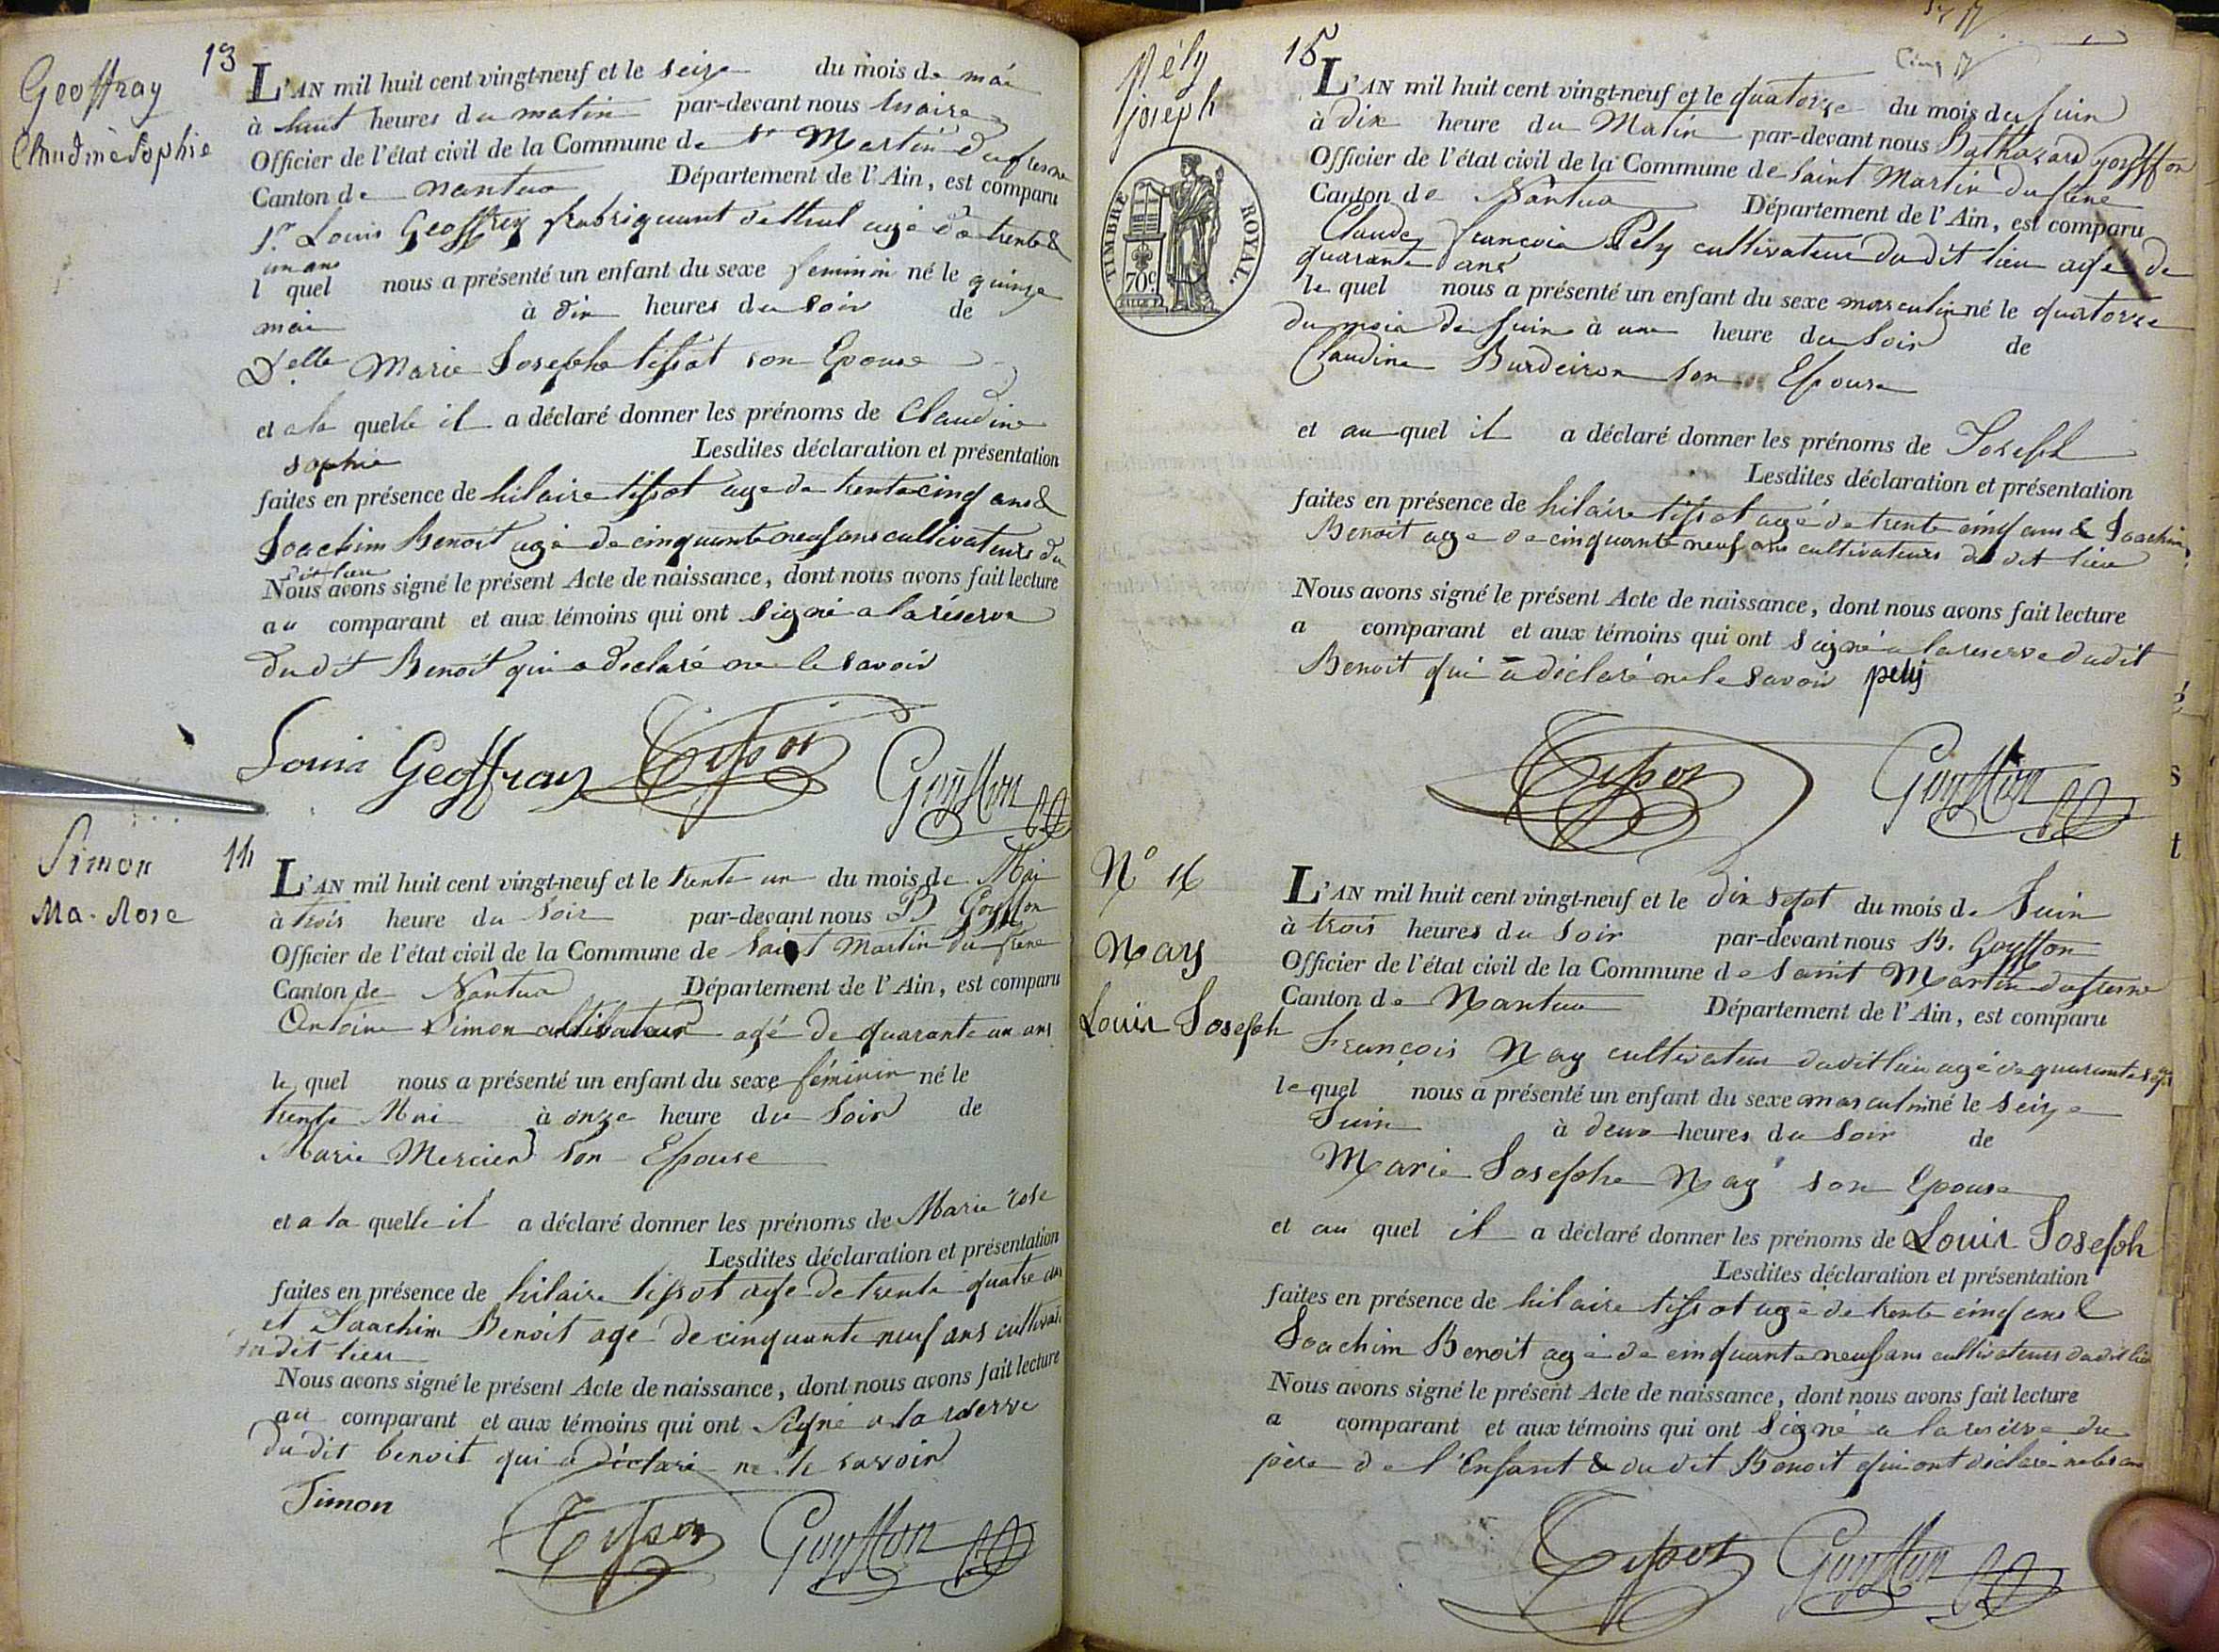 Geoffray
Claudine Sophie
13
L'AN mil huit cent vingt-neuf et le seize du mois de mai
à huit heures du matin par-devant nous maire
Officier de l'état civil de la Commune de St Martin du fresne
Canton de nantua Département de l'Ain, est comparu
Sr Louis Geoffray fabriquant de thul agé de trente &
un ans
l quel nous a présenté un enfant du sexe feminin né le quinze
mai à dix heures du soir de
Delle Marie Josephe tissot son Epouse
et a la quelle il a déclaré donner les prénoms de Claudine
sophie Lesdites déclaration et présentation
faites en présence de hilaire tissot age de trente cinq ans &
Joachim Benoit agé de cinquante neuf ans cultivateurs du
dit lieu
Nous avons signé le présent Acte de naissance, dont nous avons fait lecture
au comparant et aux témoins qui ont signé a la réserve
du dit Benoit qui a declaré ne le savoir
Louis Geoffray Tissot Gouffon
Simon
Ma. Rose
14
L'AN mil huit cent vingt-neuf et le trente un du mois de Mai
à trois heure du soir par-devant nous B Gouffon
Officier de l'état civil de la Commune de Saint Martin du frene
Canton de Nantua Département de l'Ain, est comparu
Antoine Simon cultivateur agé de quarante un ans
le quel nous a présenté un enfant du sexe féminin né le
trente Mai à onze heure du Soir de
Marie Mercier son Epouse
et a la quelle il a déclaré donner les prénoms de Marie rose
Lesdites déclaration et présentation
faites en présence de hilaire tissot age de trente quatre ans
et Joachim Benoit age de cinquante neuf ans cultivat
du dit lieu
Nous avons signé le présent Acte de naissance, dont nous avons fait lecture
au comparant et aux témoins qui ont signé a la réserve
du dit benoit qui a déclaré ne le savoir
Simon Tissot Gouffon
Pély
joseph
TIMBRE ROYAL.
70c.
15
Cinq
L'AN mil huit cent vingt-neuf et le quatorze du mois de Juin
à dix heure du Matin par-devant nous Balthazard gouffon
Officier de l'état civil de la Commune de Saint Martin du frene
Canton de Nantua Département de l'Ain, est comparu
Claude francois Pely cultivateur du dit lieu age de
quarante ans
le quel nous a présenté un enfant du sexe masculin né le quatorze
du mois de Juin à une heure du Soir de
Claudine Burdeiron son Epouse
et au quel il a déclaré donner les prénoms de Joseph
Lesdites déclaration et présentation
faites en présence de hilaire tissot agé de trente cinq ans & Joachim
Benoit age de cinquante neuf ans cultivateurs du dit lieu
Nous avons signé le présent Acte de naissance, dont nous avons fait lecture
a comparant et aux témoins qui ont signé a la reserve dudit
Benoit qui a déclaré ne le savoir pely
Tissot Gouffon
No 16
Nay
Louis Joseph
L'AN mil huit cent vingt-neuf et le dix sept du mois de Juin
à trois heures du Soir par-devant nous B. Gouffon
Officier de l'état civil de la Commune de Saint Martin du fresne
Canton de Nantua Département de l'Ain, est comparu
François Nay cultivateur dudit lieu agé de quarante sept
le quel nous a présenté un enfant du sexe masculin né le seize
Juin à deux heures du Soir de
Marie Josephe Nay son Epouse
et au quel il a déclaré donner les prénoms de Louis Joseph
Lesdites déclaration et présentation
faites en présence de hilaire tissot agé de trente cinq ans &
Joachim Benoit agé de cinquante neuf ans cultivateurs dudit lieu
Nous avons signé le présent Acte de naissance, dont nous avons fait lecture
a comparant et aux témoins qui ont signé a la reserve du
père de l'Enfant & du dit Benoit qui ont déclaré ne le savoir
Tissot Gouffon